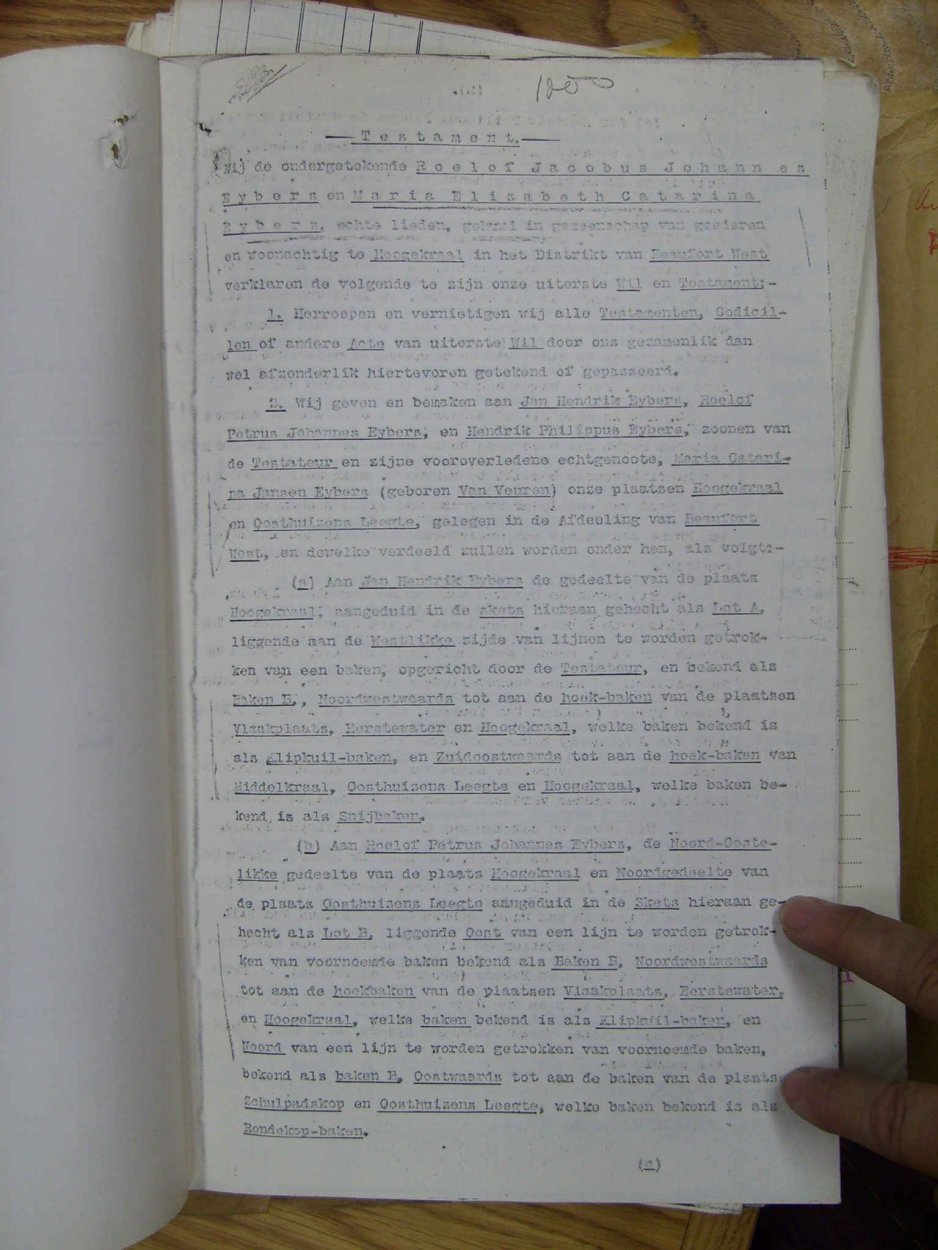 1250
Testament.
Wij de ondergetekende Roelof Jacobus Johannes
Eybers en Maria Elizabeth Catarina
Eybers, echte lieden, gehuwd in gemeenschap van goederen
en woonachtig te Hoogekraal in het Distrikt van Beaufort West
verklaren de volgende te zijn onze uiterste Wil en Testament:-
1. Herroepen en vernietigen wij alle Testamenten, Codicil-
len of andere Acte van uiterste Wil door ons gezamenlik dan
wel afzonderlik hiertevoren getekend of gepasseerd.
2. Wij geven en bemaken aan Jan Hendrik Eybers, Roelof
Petrus Johannes Eybers, en Hendrik Philippus Eybers, zoonen van
de Testateur en zijne vooroverledene echtgenoote, Maria Catari-
na Jansen Eybers (geboren Van Veuren) onze plaatsen Hoogekraal
en Oosthuizens Leegte, gelegen in de Afdeeling van Beaufort
West, en dewelke verdeeld zullen worden onder hen, als volgt:-
(a) Aan Jan Hendrik Eybers de gedeelte van de plaats
Hoogekraal, aangeduid in de skets hieraan gehecht als Lot A,
liggende aan de Westlikke zijde van lijnen te worden getrok-
ken van een baken, opgericht door de Testateur, en bekend als
Baken B,, Noordwestwaards tot aan de hoek-baken van de plaatsen
Vlaakplaats, Eerstewater en Hoogekraal, welke baken bekend is
als Klipkuil-baken, en Zuidoostwaards tot aan de hoek-baken van
Middelkraal, Oosthuizens Leegte en Hoogekraal, welke baken be-
kend is als Snijbaken.
(b) Aan Roelof Petrus Johannes Eybers, de Noord-Ooste-
likke gedeelte van de plaats Hoogekraal en Noordgedeelte van
de plaats Oosthuizens Leegte aangeduid in de Skets hieraan ge-
hecht als Lot B, liggende Oost van een lijn te worden getrok-
ken van voornoemde baken bekend als Baken B, Noordwestwaards
tot aan de hoekbaken van de plaatsen Vlaakplaats, Eerstewater,
en Hoogekraal, welke baken bekend is als Klipkuil-baken, en
Noord van een lijn te worden getrokken van voornoemde baken,
bekend als baken B, Oostwaards tot aan de baken van de plaats
Schulpadskop en Oosthuizens Leegte, welke baken bekend is als
Rondekop-baken.
(c)